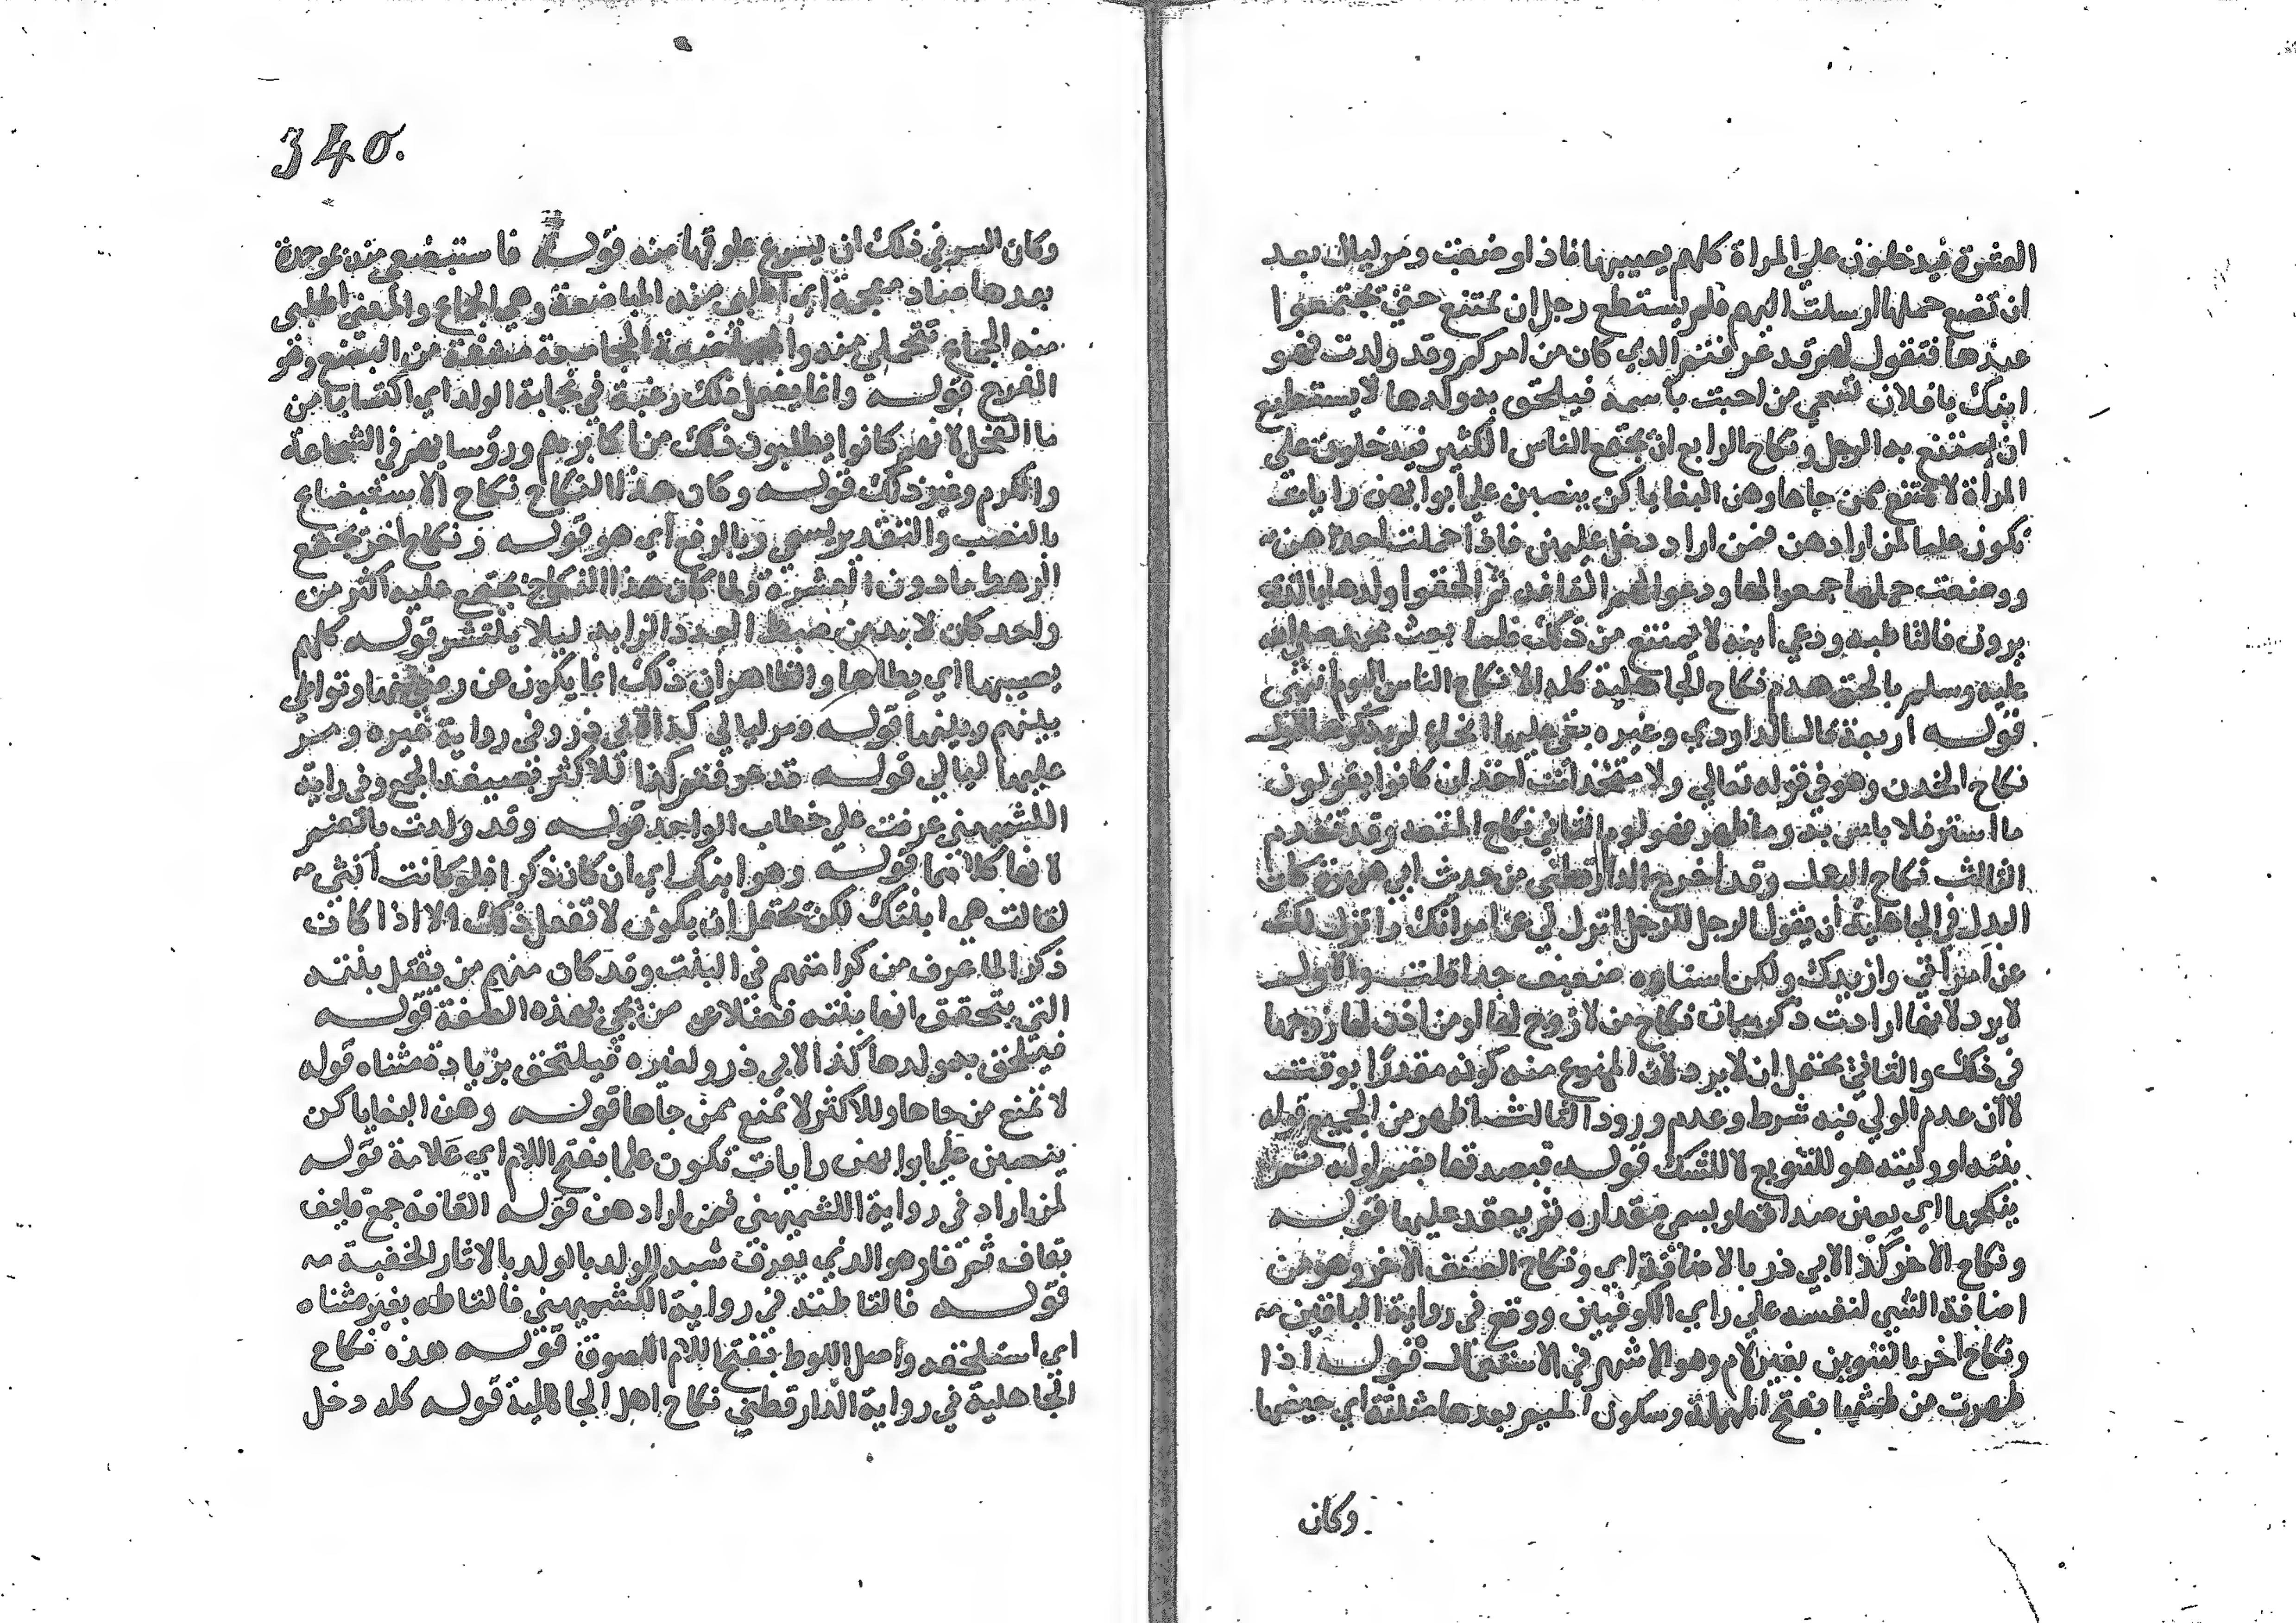 العشرة فيدخلون علي المراة كلهم يصيبها فاذا وضعت ومر ليال بعد
ان تضع حملها ارسلت اليهم فلم يستطع رجل ان يمتنع حتى يجتمعوا
عندها فتقول لهم قد عرفتم الذي كان من امركم وقد ولدت فهو
ابنك يا فلان تسمي من احبت باسمه فيلحق به ولدها لا يستطيع
ان يمتنع به الرجل ونكاح الرابع ان يجتمع الناس الكثير فيدخلون على
المرأة لا تمتنع ممن جاها وهن البغايا كن ينصبن علي ابوابهن رايات
تكون علما لمن ارادهن فمن اراد دخل عليهن فاذا حملت احداهن
ووضعت حملها جمعوا لها ودعوا لهم القافه ثم الحقوا ولدها بالذي
يرون فالتاطبه ودعي ابنه لا يمتنع من ذلك فلما بعث محمد صلى الله
عليه وسلم بالحق هدم نكاح الجاهلية كله الا نكاح الناس اليوم انتهى
قوله اربعة قال الداودي وغيره بقي عليها انحاء لم يذكرها الاول
نكاح الخدن وهو في قوله تعالي ولا متخذات اخدان كانوا يقولون
ما استتر فلا باس به وما ظهر فهو لوم الثاني نكاح المتعه وقد تقدم
الثالث نكاح البدل وقد اخرج الدارقطني من حدث ابي هريرة كان
البدل في الجاهلية أن يقول الرجل للرجل انزل لي عن امراتك وانزل لك
عن امرأتي وازيدك ولكن اسناده ضعيف جدا قلت والاول
لا يرد لانها ارادت ذكر بيان نكاح من لا زوج لها او من اذن لها زوجها
في ذلك والثاني يحتمل ان لا يرد لان الممنوع منه كونه مقدرا بوقت
لا ان عدم الولي فيه شرط وعدم ورود الثالث اظهر من الجميع قوله
بنته او وليته هو للتنويع لا للشك قوله فيصدقها بضم اوله ثم
ينكحها اي يعين صداقها ويسمي مقداره ثم يعقد عليها قوله
ونكاح الاخر كذا لابي ذر بالاضافة اي ونكاح الصنف الاخر وهو من
اضافة الشي لنفسه علي راي الكوفيين ووقع في رواية الباقين
ونكاح اخر بالتنوين بغير لام وهو الاشهر في الاستعمال قوله اذا
طهرت من طمثها بفتح المهملة وسكون الميم بعدها مثلثة اي حيضها
وكان
340.
وكان السر في ذلك ان يسرع علوقها منه قوله فاستبضعي منه بموحدة
بعدها ضاد معجمة اي اطلبي منه المباضعة وهي الجماع والمعنى اطلبي
منه الجماع تتحملي منه والمباضعة المجامعة مشتقة من البضع وهو
الفرج قوله وانما يفعل ذلك رغبة في نجابة الولد اي اكتسابا من
ما الفحل لانهم كانوا يطلبون ذلك من اكابرهم ورؤسايهم في الشجاعة
والكرم وغير ذلك قوله وكان هذا النكاح نكاح الاستبضاع
بالنصب والتقدير يسمي وبالرفع اي هو قوله ونكاح اخر يجتمع
الرهط ما دون العشرة ولما كان هذا النكاح يجتمع عليه اكثر من
واحد كان لا بد من ضبط العدد الزايد ليلا ينتشر قوله كلهم
يصيبها اي يطاها والظاهر أن ذلك انما يكون عن رضى منها وتواطي
بينهم وبينها قوله ومر ليالي كذا لابي ذر وفي رواية غيره ومر
عليها ليالي قوله قد عرفتم كذا للاكثر بصيغة الجمع وفي راية
الكشميهني عرفت علي خطاب الواحد قوله وقد ولدت بالضم
لانها كلامها قوله وهو ابنك اي ان كان ذكرا فلو كانت أنثي
لقالت هي ابنتك لكن يحتمل ان يكون لا تفعل ذلك الا اذا كان
ذكرا لما عرف من كراهتهم في البنت وقد كان منهم من يقتل بنته
التي يتحقق انها بنته فضلا عن من تجي بهذه الصفة قوله
فيلحق به ولدها كذا لابي ذر ولغيره فيلتحق بزيادة مثناه قوله
لا تمنع من جاها وللاكثر لا تمنع ممن جاها قوله وهن البغايا كن
ينصبن علي ابوابهن رايات تكون علما بفتح اللام اي علامة قوله
لمن اراد في رواية الكشميهني فمن ارادهن قوله القافة جمع قايف
بقاف ثم فا وهو الذي يعرف شبه الولد بالولد بالاثار الخفية
قوله فالتاطته في رواية الكشميهني فالتاطه بغير مثناه
اي استلحقه واصل اللوط بفتح اللام اللصوق قوله هدم نكاح
الجاهلية في رواية الدارقطني نكاح اهل الجاهلية قوله كله دخل